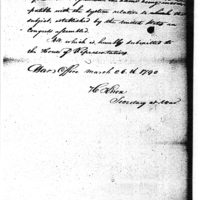 patible with the system relative to which the
subject, established by the United States in
Congress assembled.
All which is humbly submitted to
the House of Representatives.
War Office March 26th. 1790
H Knox
Secretary at War